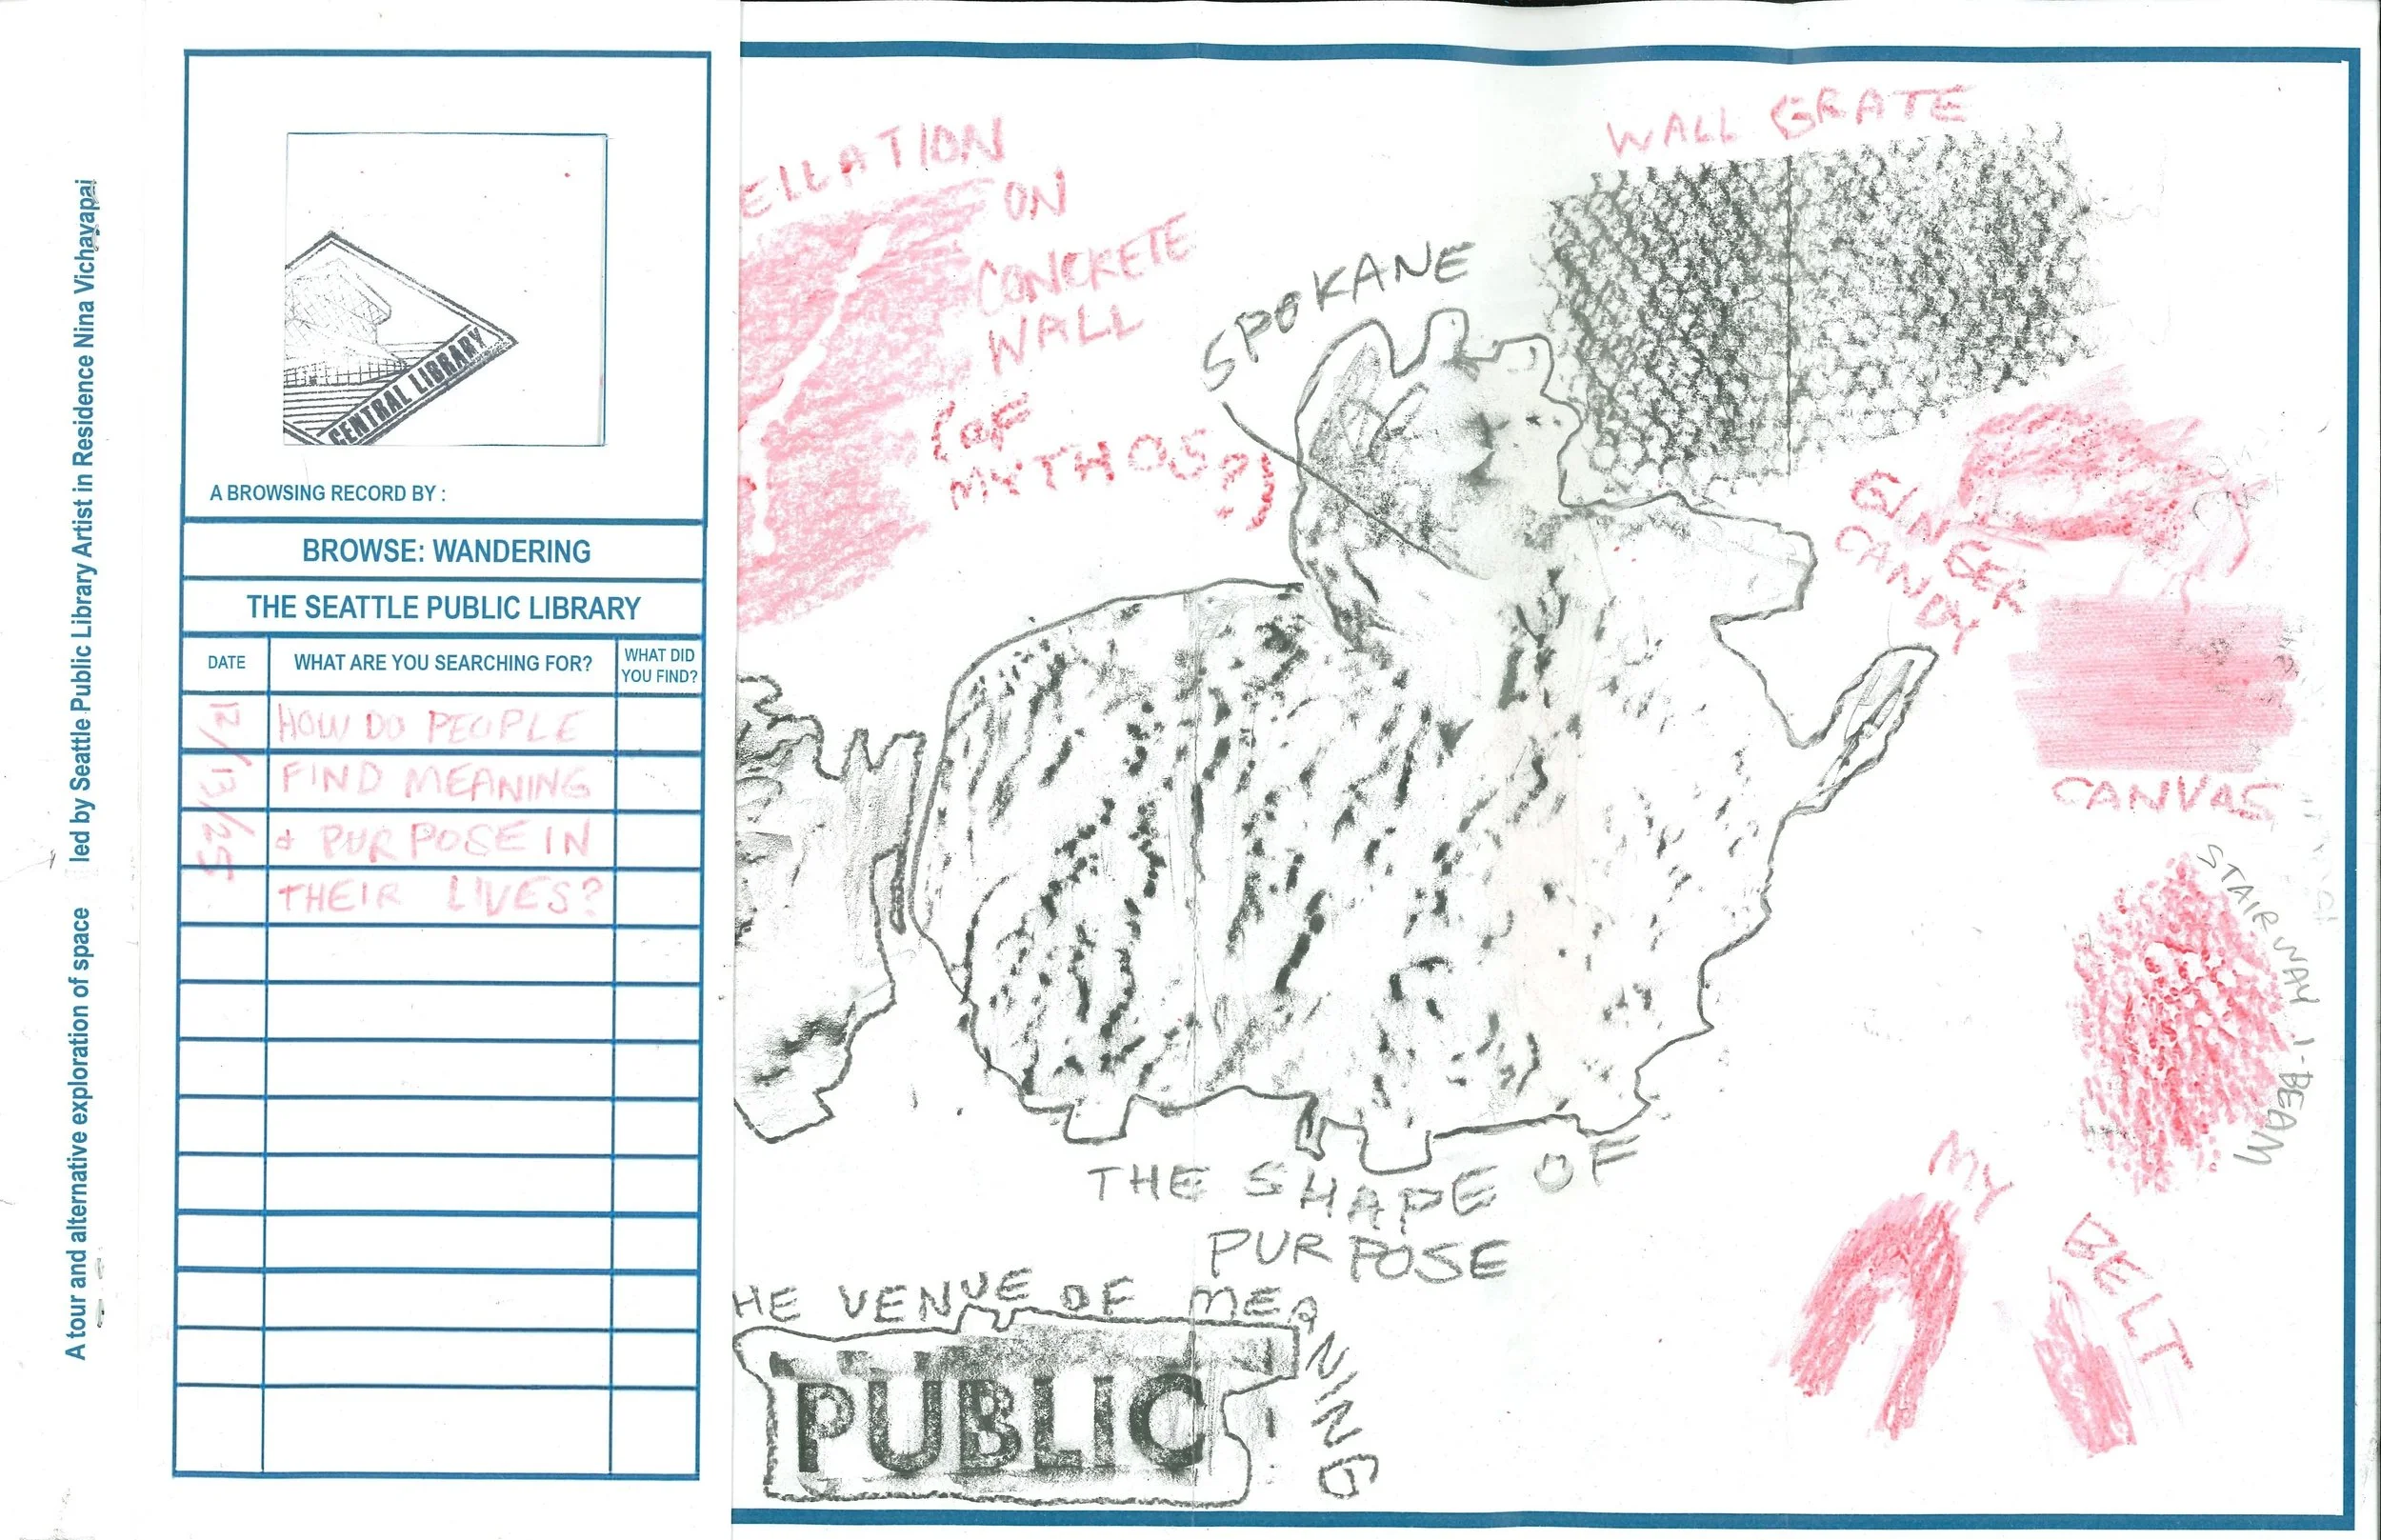 A tour and alternative exploration of space led by Seattle Public Library Artist in Residence Nina Vichayapai
CENTRAL LIBRARY
A BROWSING RECORD BY :
BROWSE: WANDERING
THE SEATTLE PUBLIC LIBRARY
DATE
WHAT ARE YOU SEARCHING FOR?
WHAT DID
YOU FIND?
12/13/25
HOW DO PEOPLE
FIND MEANING
& PURPOSE IN
THEIR LIVES?
ELLATION
ON
CONCRETE
WALL
(OF
MYTHOS?)
SPOKANE
WALL GRATE
GINGER
CANDY
CANVAS
STAIRWAY I-BEAM
MY
BELT
THE SHAPE OF
PURPOSE
HE VENUE OF MEANING
PUBLIC